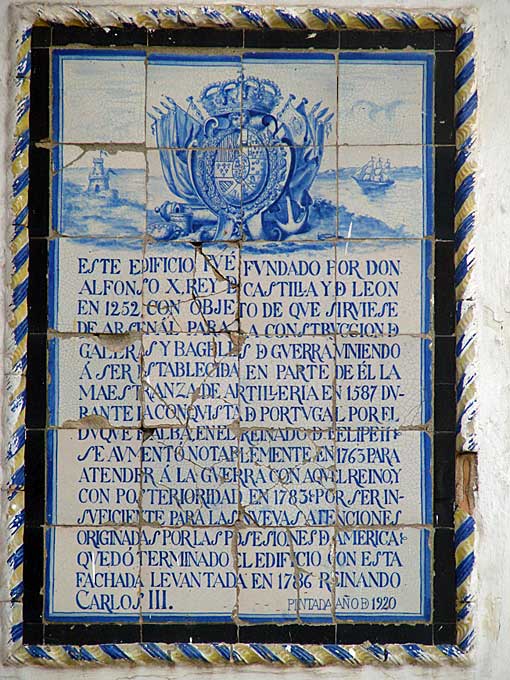 ESTE EDIFICIO FVÉ FVNDADO POR DON
ALFONSO X. REY D CASTILLA Y D LEON
EN 1252, CON OBJETO DE QVE SIRVIESE
DE ARSENAL PARA LA CONSTRUCCION D
GALERAS Y BAGELES D GVERRA VINIENDO
Á SER ESTABLECIDA EN PARTE DE ÉL LA
MAESTRANZA DE ARTILLERIA EN 1587 DV-
RANTE LA CONQVISTA D PORTVGAL POR EL
DVQVE D ALBA, EN EL REINADO D FELIPE II
SE AVMENTÓ NOTABLEMENTE EN 1763 PARA
ATENDER Á LA GVERRA CON AQVEL REINO Y
CON POSTERIORIDAD, EN 1783: POR SER IN-
SVFICIENTE PARA LAS NVEVAS ATENCIONES
ORIGINADAS POR LAS POSESIONES D AMERICA:
QVEDÓ TERMINADO EL EDIFICIO CON ESTA
FACHADA LEVANTADA EN 1786 REINANDO
CARLOS III.
PINTADA AÑO D 1920